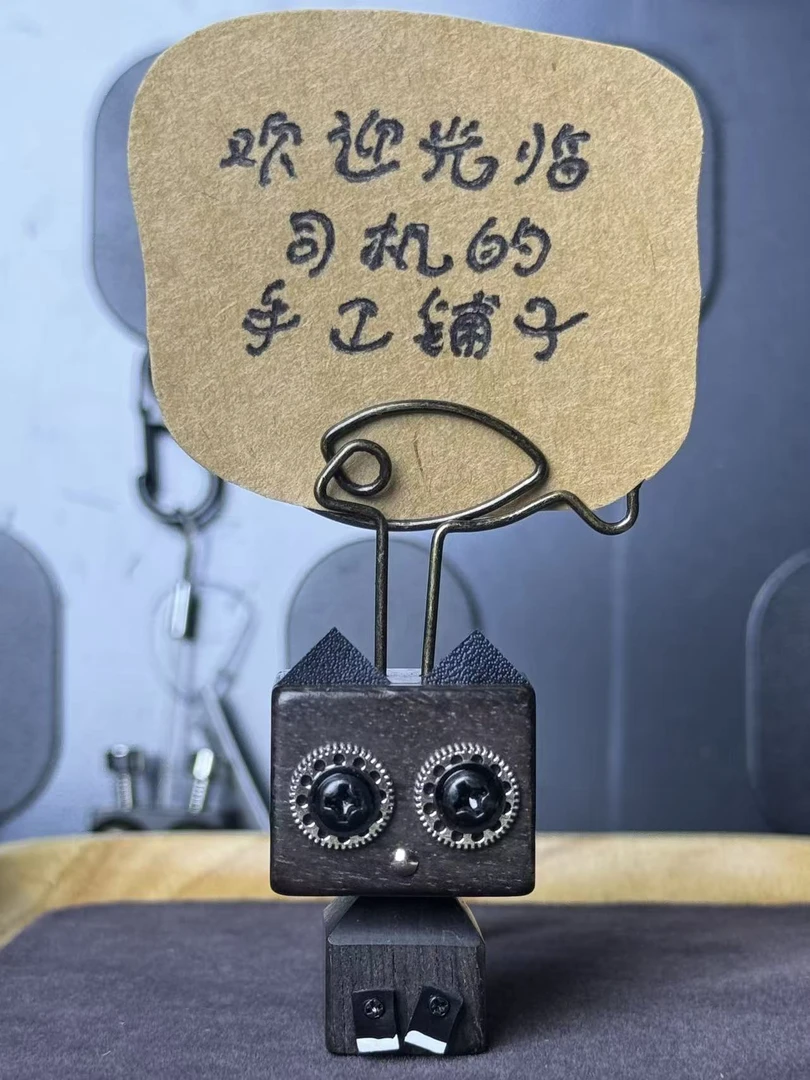 欢迎光临
司机的
手工铺子